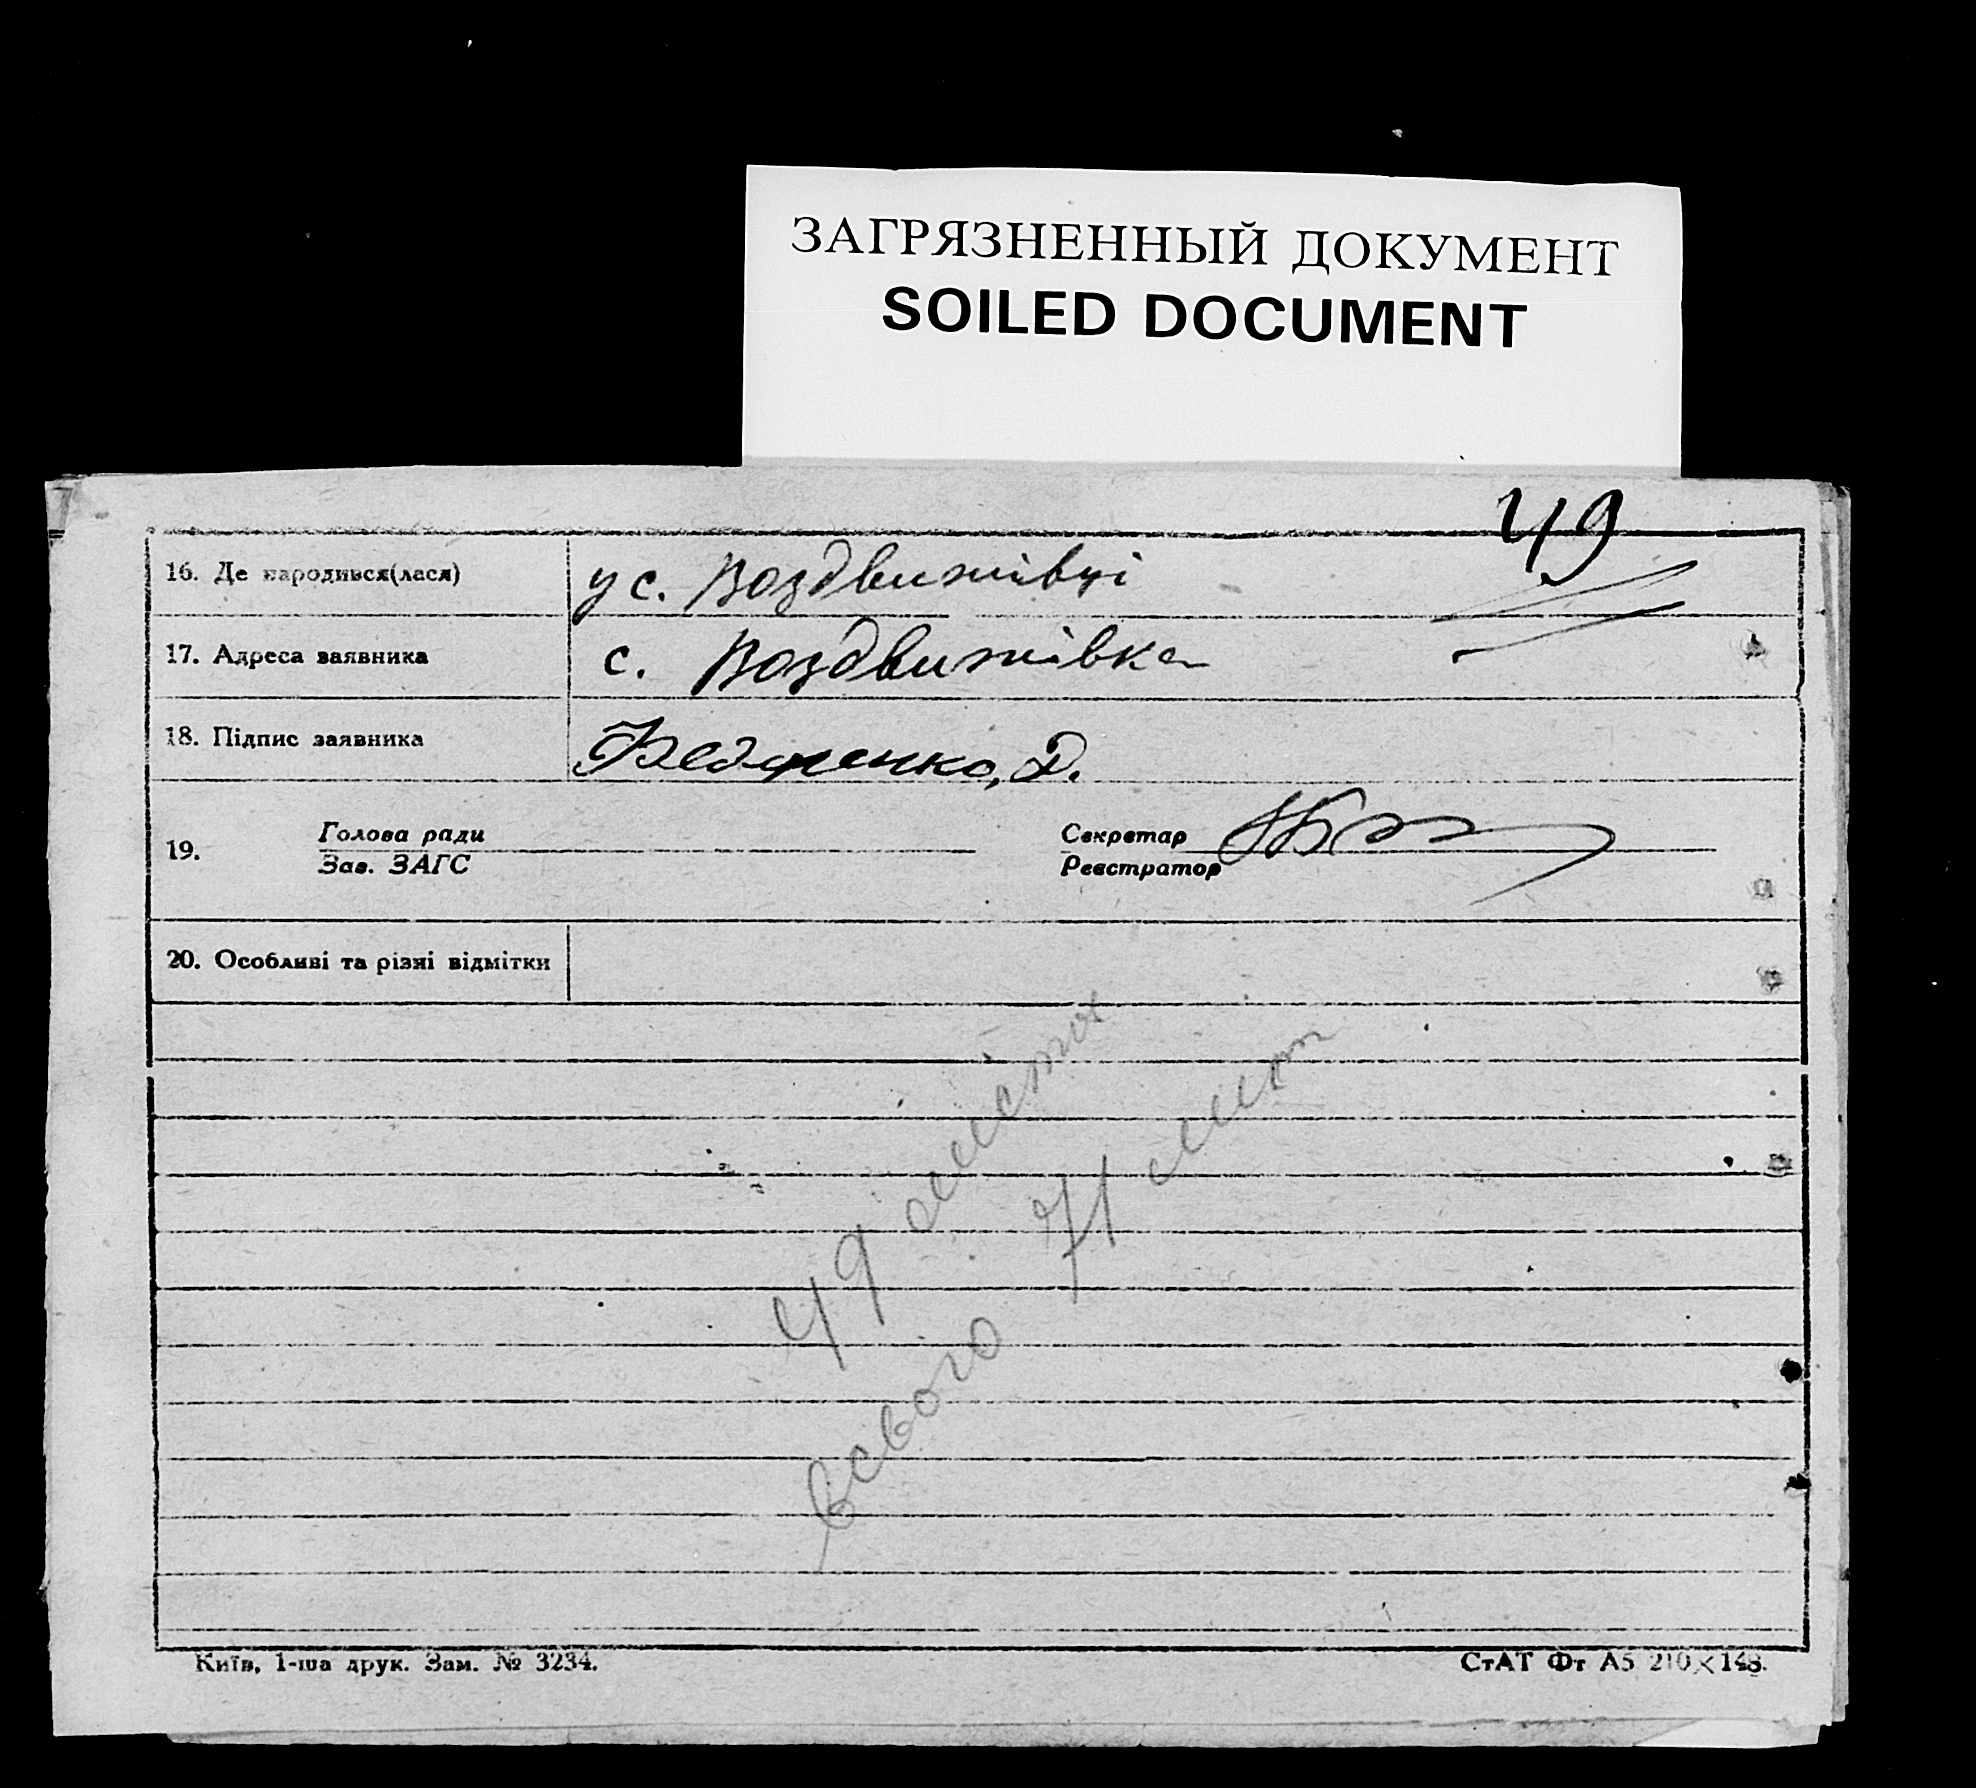 ЗАГРЯЗНЕННЫЙ ДОКУМЕНТ
SOILED DOCUMENT
49
16. Де народився(лася) у с. Воздвижівці
17. Адреса заявника с. Воздвижівка
18. Підпис заявника Д.
19. Голова ради Секретар
Зав. ЗАГС Реєстратор
20. Особливі та різні відмітки
49
всього 71 лист
Київ, 1-ша друк. Зам. № 3234. СтАТ Фт А5 210×148.